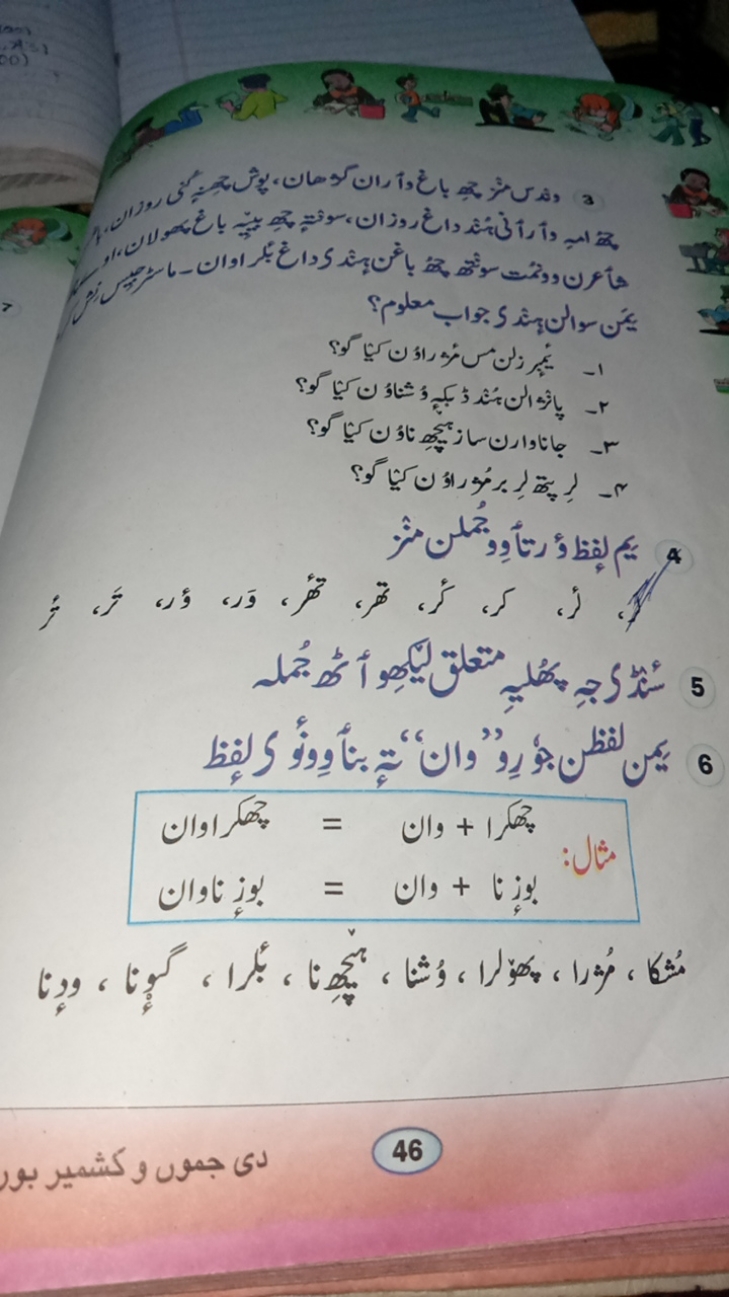 3 وندس منٛز چھِ باغ وٲران گژھان، پوش چھِنہٕ کُنی روزان،
چھُ امہِ وٲرٲنی ہُنٛد داغ روزان، سونتہٕ چھِ بییہِ باغ پھولان،
شٲعرن وونمُت سونتھ چھُ باغن ہِنٛدی داغ بٔلراوان ۔ ماسٹر جیس نِش
یمَن سوالن ہِنٛدی جواب معلوم؟
۱۔ یٔمبرزلن مس مُژراوُن کیٛا گو؟
۲۔ پانژالن ہُنٛد ڈبکہٕ وُشناوُن کیٛا گو؟
۳۔ جاناوارن ساز ہیٚچھِناوُن کیٛا گو؟
۴۔ لرِ پتھ لرِ بر مُژراوُن کیٛا گو؟
4 یِم لفٕظ ؤرتٲوِو جُملن منٛز
لٔر، کر، کٔر، تھر، تھٔر، وَر، ؤر، تَر، تٔر
5 سُنٛدی جہِ پھُلیہِ متعلق لیٚکھِو ٲٹھ جُملہ
6 یمن لفظن جوٗرِو ”وان“ تہٕ بنٲوِو نٔوی لفٕظ
مثال:
چھکرا + وان = چھکراوان
بوزٕنا + وان = بوزٕناوان
مُشکا ، مُژرا ، پھۄلرا ، وُشنا ، ہیٚچھِنا ، بٔلرا ، گیوٕنا ، ودٕنا
46
دی جموں و کشمیر بور